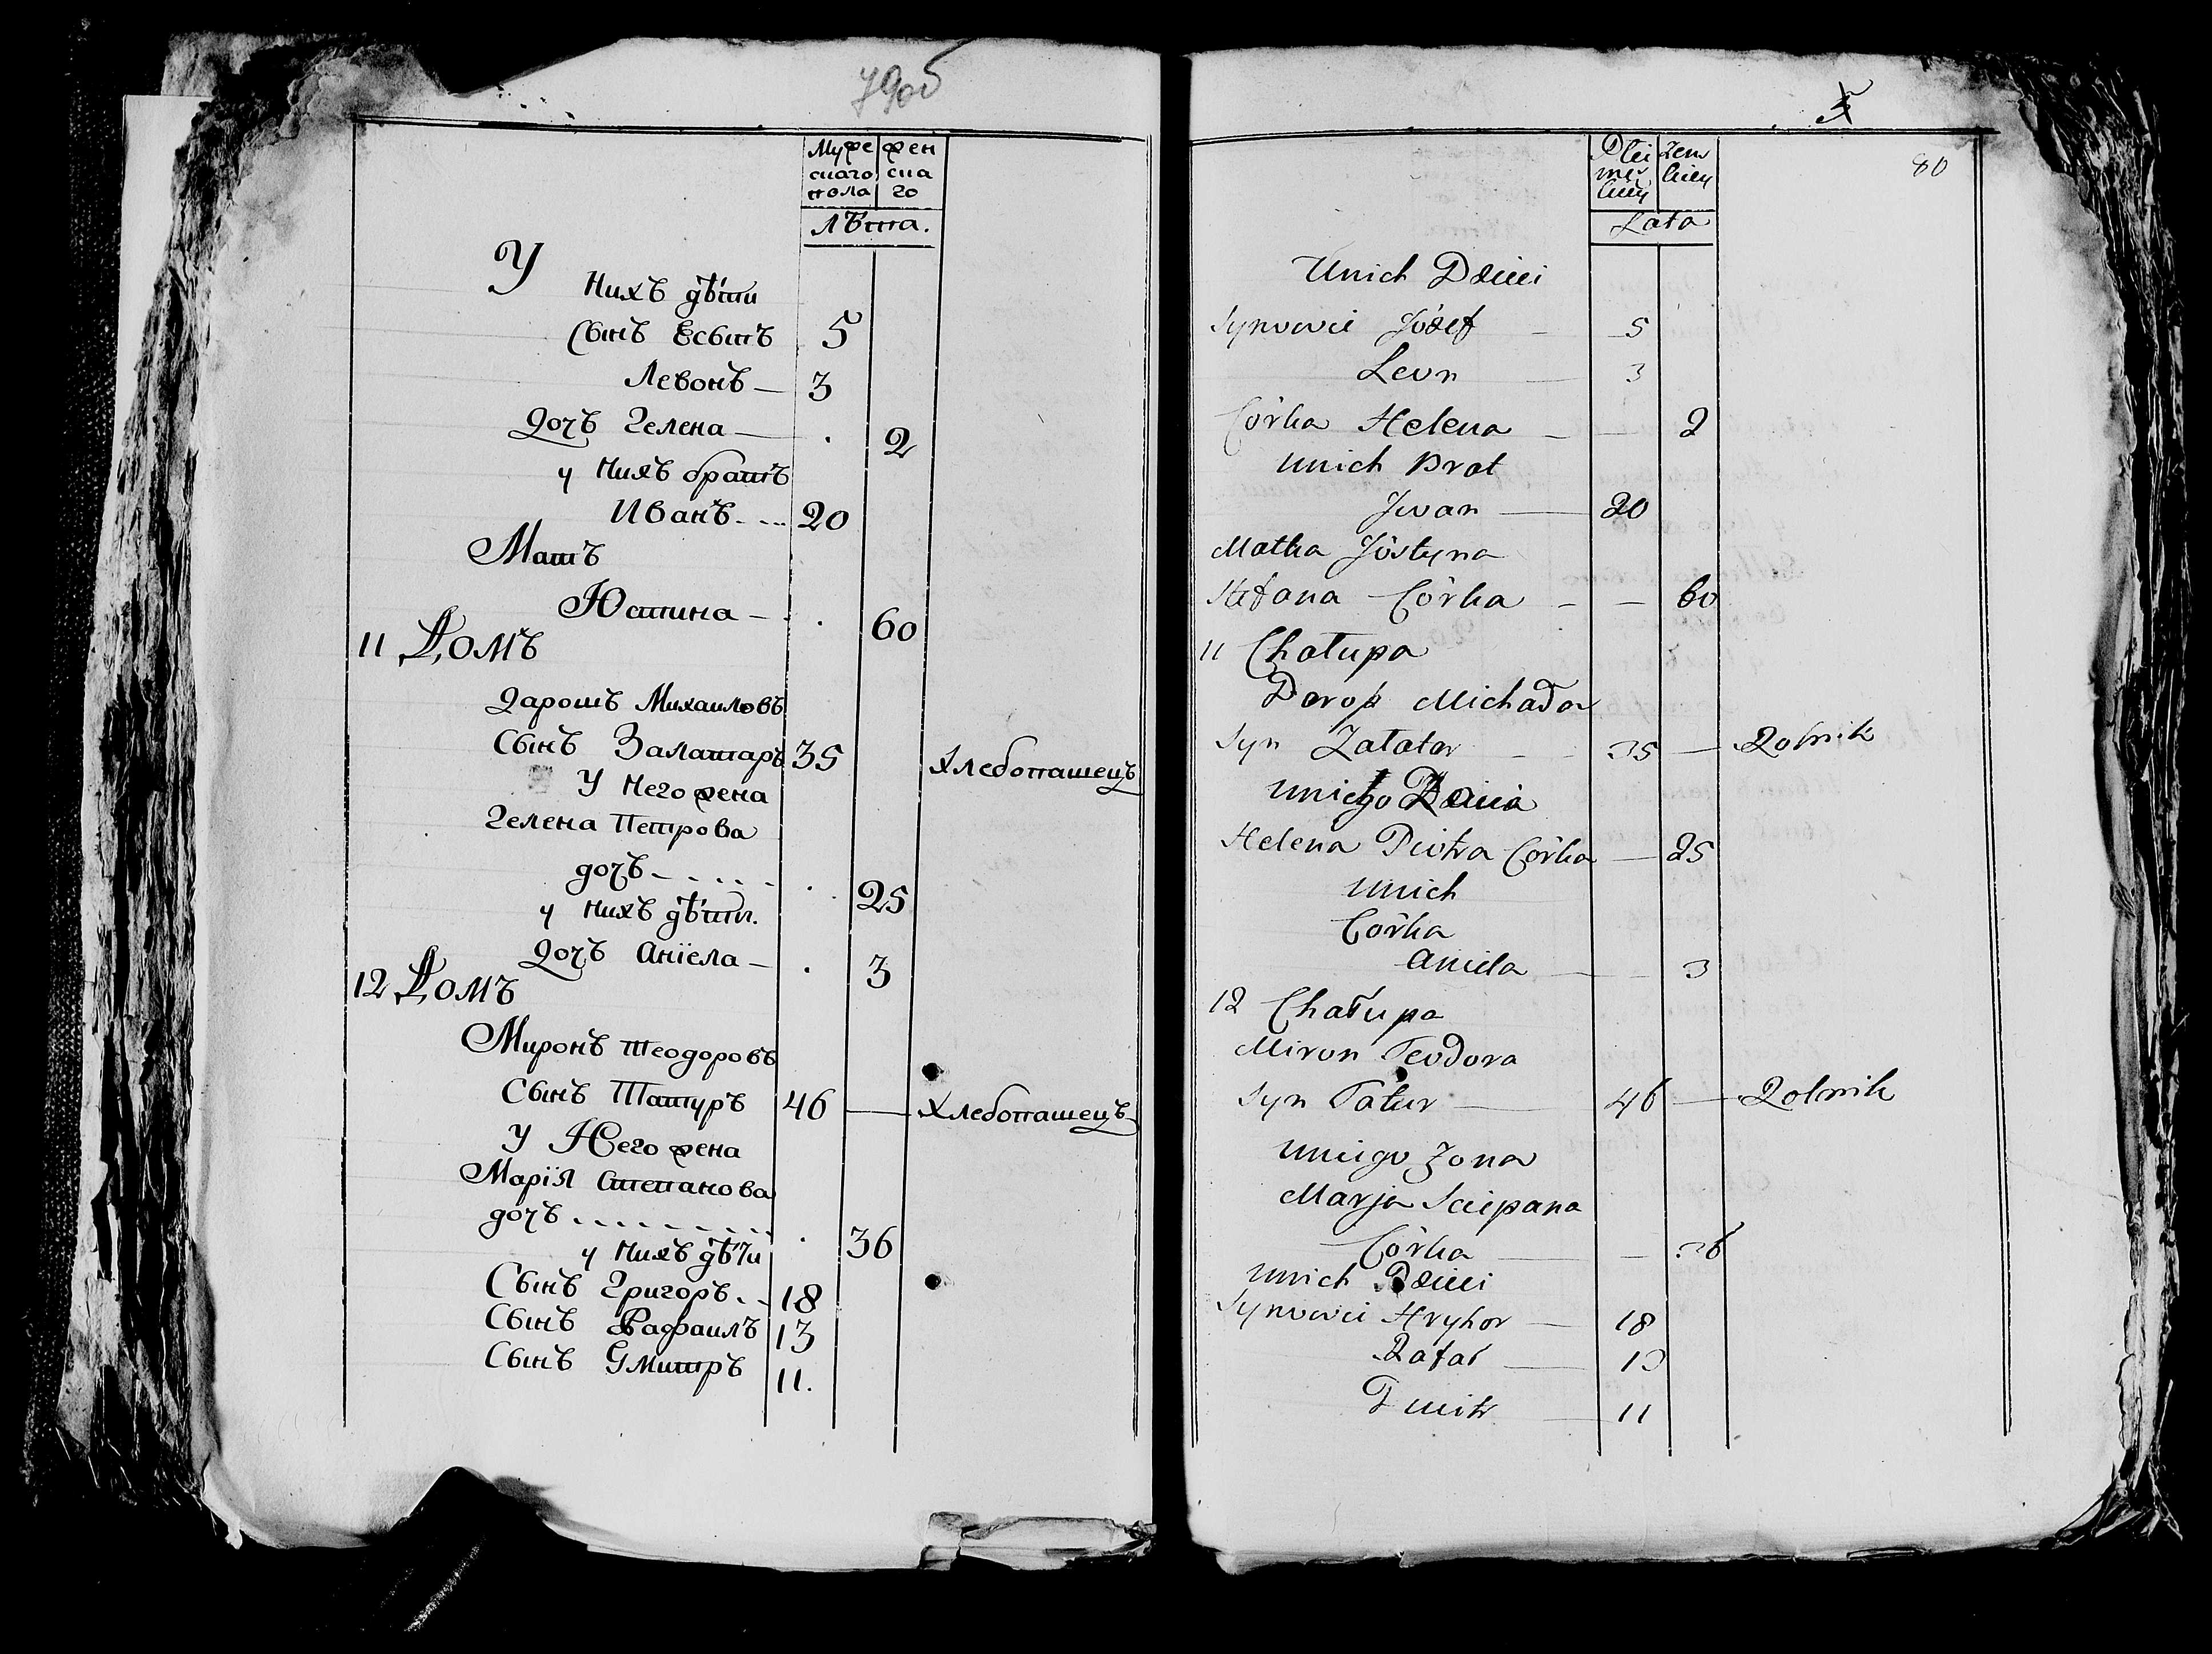 79об
Муже жен
скаго ска
пола го
Лѣта.
У
нихъ дѣти
Сынъ Есыпъ 5
Левонъ — 3
Дочь Гелена — . 2
у нихъ братъ
Иванъ - - - 20
Мать
Юстина — . 60
11 Домъ
Дарошъ Михаиловъ
Сынъ Залатаръ 35 Хлебопашецъ
У него жена
Гелена Петрова
дочь - . - . - . 25
у нихъ дѣти.
Дочь Аніела — . 3
12 Домъ
Миронъ Теодоровъ
Сынъ Татуръ 46 — Хлебопашецъ
У Него жена
Марія Степанова
дочь . - - - - - - . 36
у нихъ дѣти
Сынъ Григоръ. - 18
Сынъ Рафаилъ 13
Сынъ Дмитръ 11.
80
Płci Żeń
męs skiey
kiey
Lata
U nich Dzieci
Synowie Józef — 5
Lewn — 3
Córka Helena — — 2
U nich Brat
Jwan — 20
Matka Jóstyna
Stefana Córka — — 60
11 Chałupa
Darosz Michała
Syn Zatatar — — 35 — Rolnik
U niego Żona
Helena Piotra Córka — 25
U nich
Córka
Aniela — — 3
12 Chałupa
Miron Teodora
Syn Tatur — 46 — Rolnik
U niego Żona
Marja Sciepana
Córka — — 36
U nich Dzieci
Synowie Hryhor — 18
Rafał — 13
Dmitr — 11